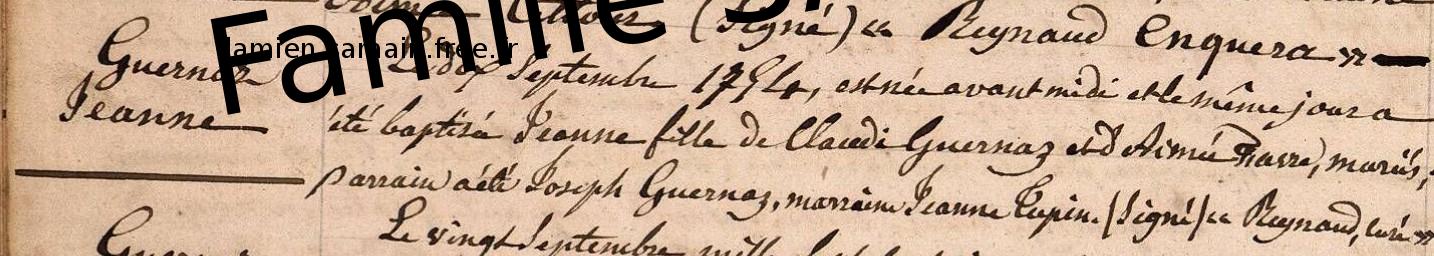 (Signé) « Reynaud Enquera » —
Famille S
damien.samain.free.fr
Guernaz
Jeanne
Le dix Septembre 1754, est née avant midi et le même jour a
été baptisée Jeanne fille de Claude Guernaz et d'Aimée Favre, mariés,
Parrain a été Joseph Guernaz, marraine Jeanne Cupin. (Signé) « Reynaud, curé »
Le vingt Septembre mille